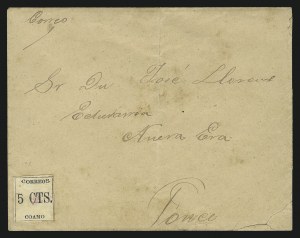 Correo
Sr Dn José Llorens
Nueva Era
Ponce
CORREOS
5 CTS.
COAMO